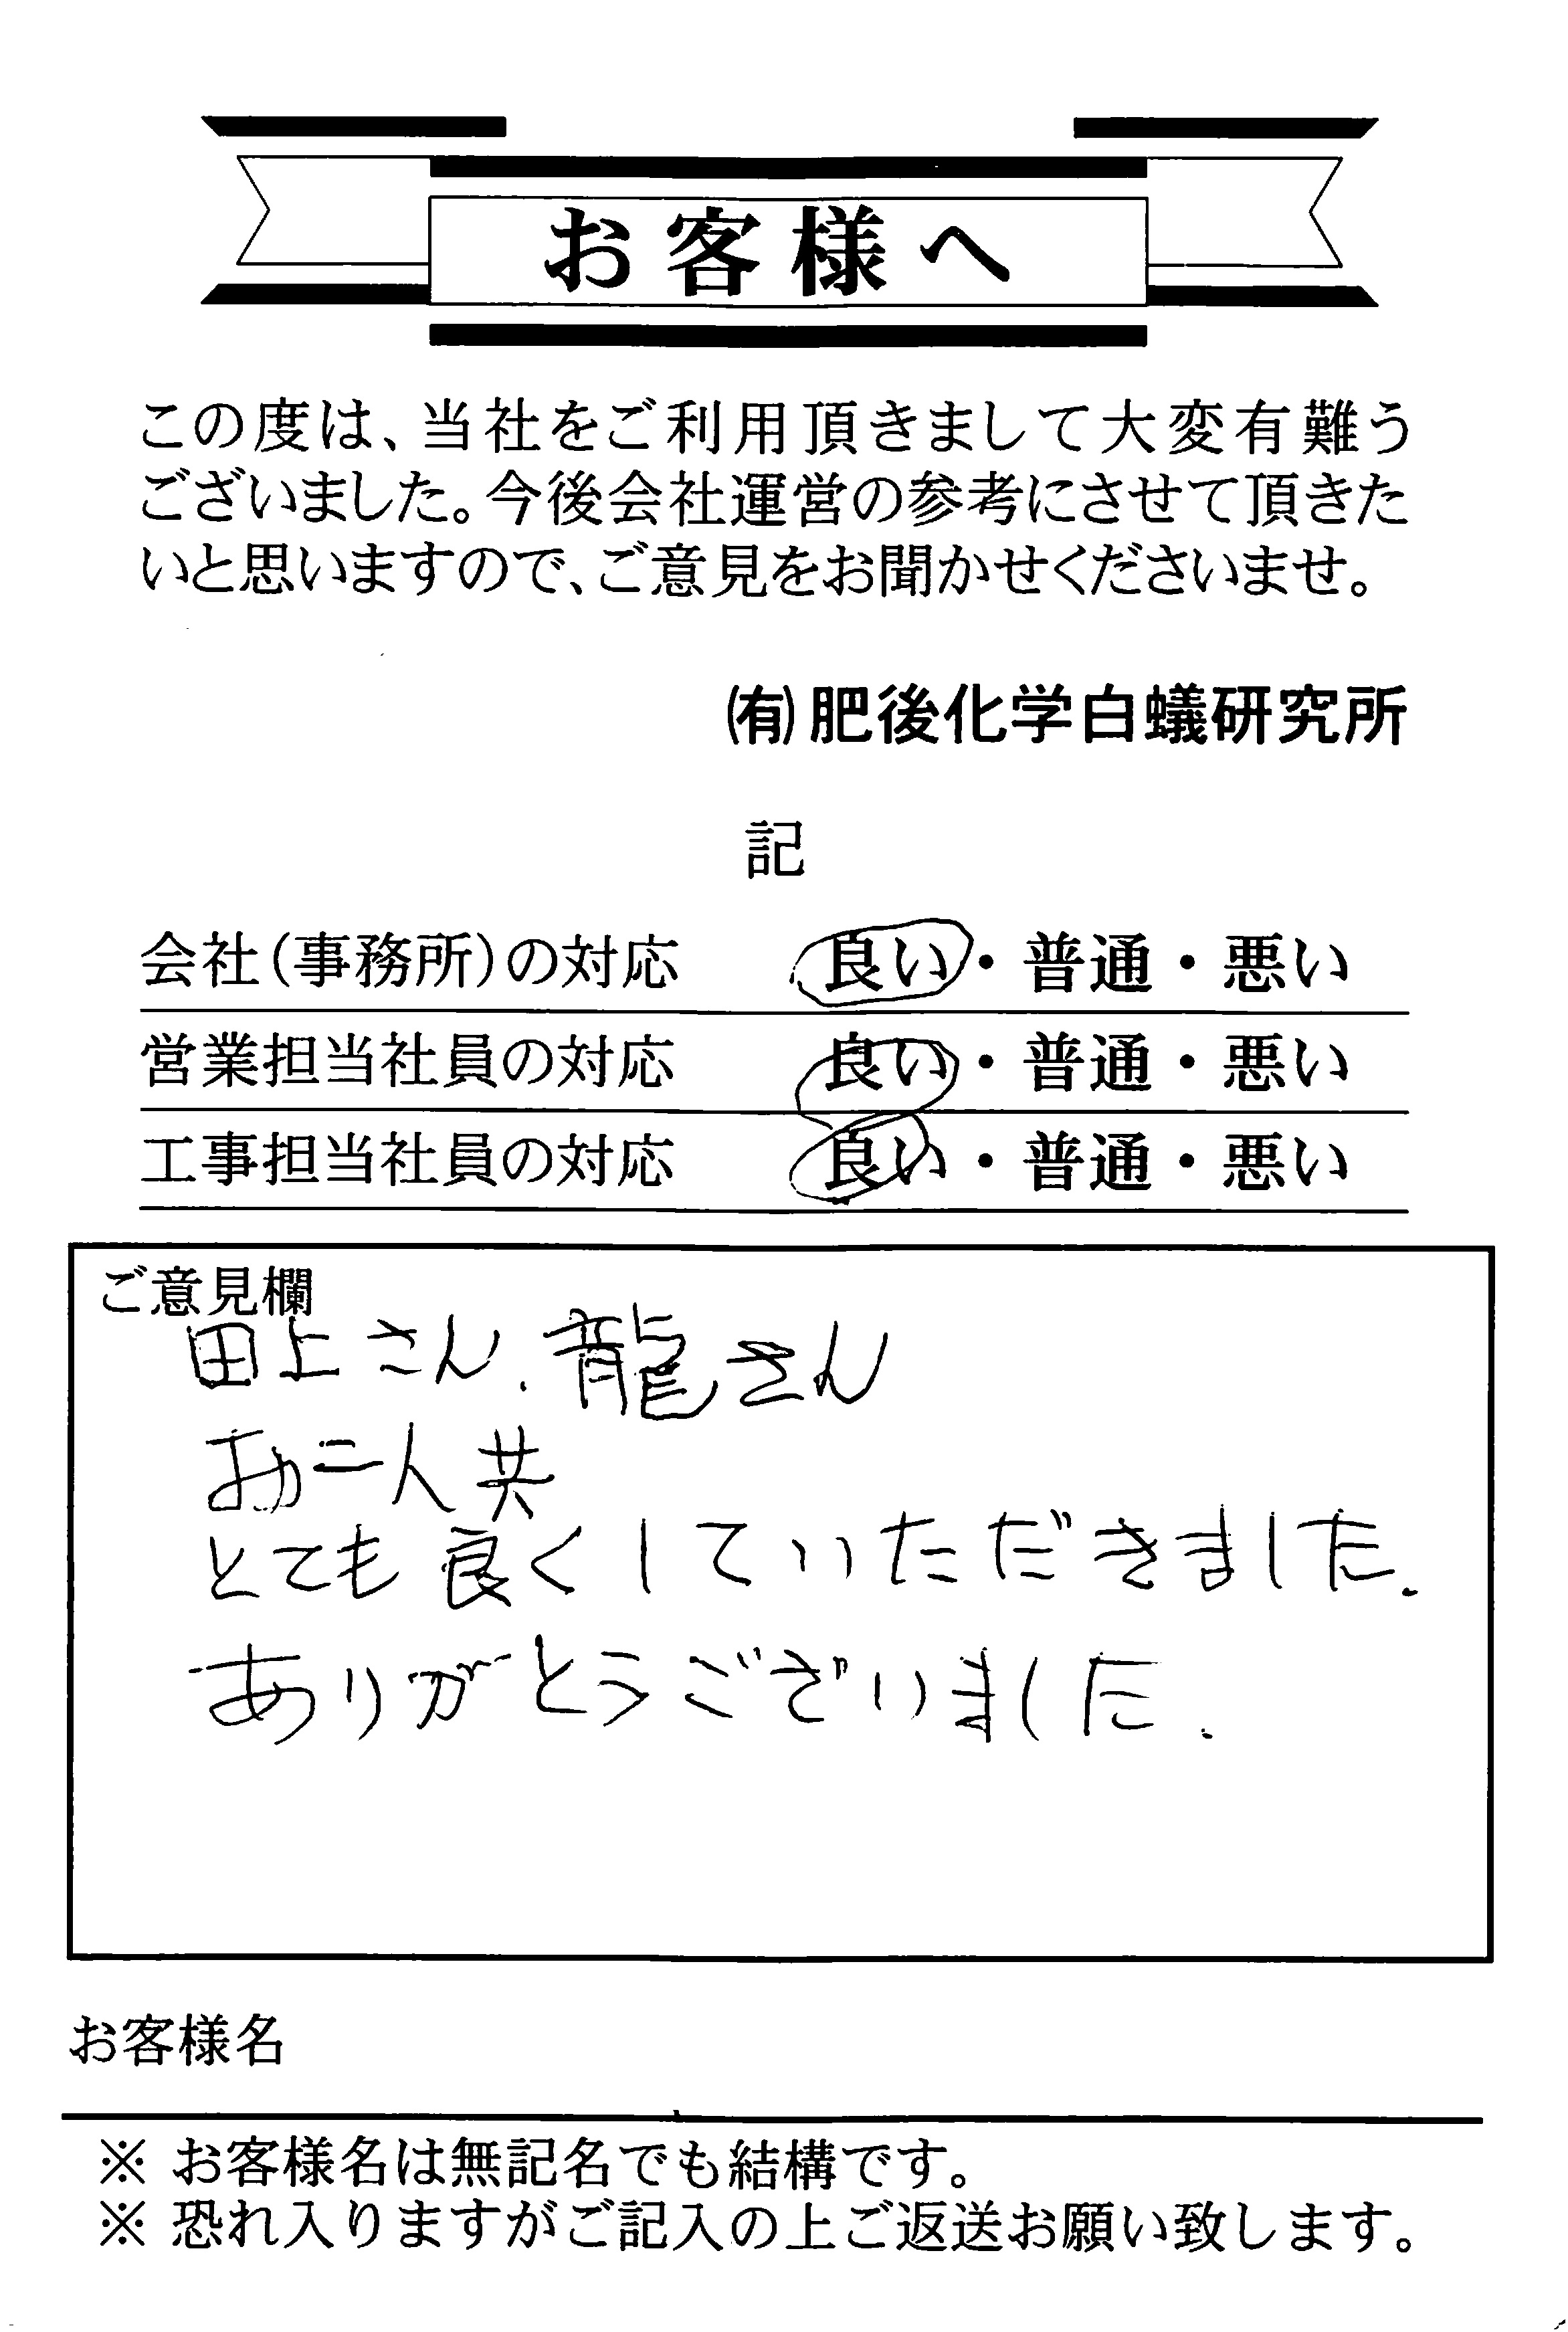 お客様へ
この度は、当社をご利用頂きまして大変有難う
ございました。今後会社運営の参考にさせて頂きた
いと思いますので、ご意見をお聞かせくださいませ。
㈲肥後化学白蟻研究所
記
会社(事務所)の対応 良い・普通・悪い
営業担当社員の対応 良い・普通・悪い
工事担当社員の対応 良い・普通・悪い
ご意見欄
田上さん、龍さん
お二人共
とても良くしていただきました.
ありがとうございました.
お客様名
※ お客様名は無記名でも結構です。
※ 恐れ入りますがご記入の上ご返送お願い致します。